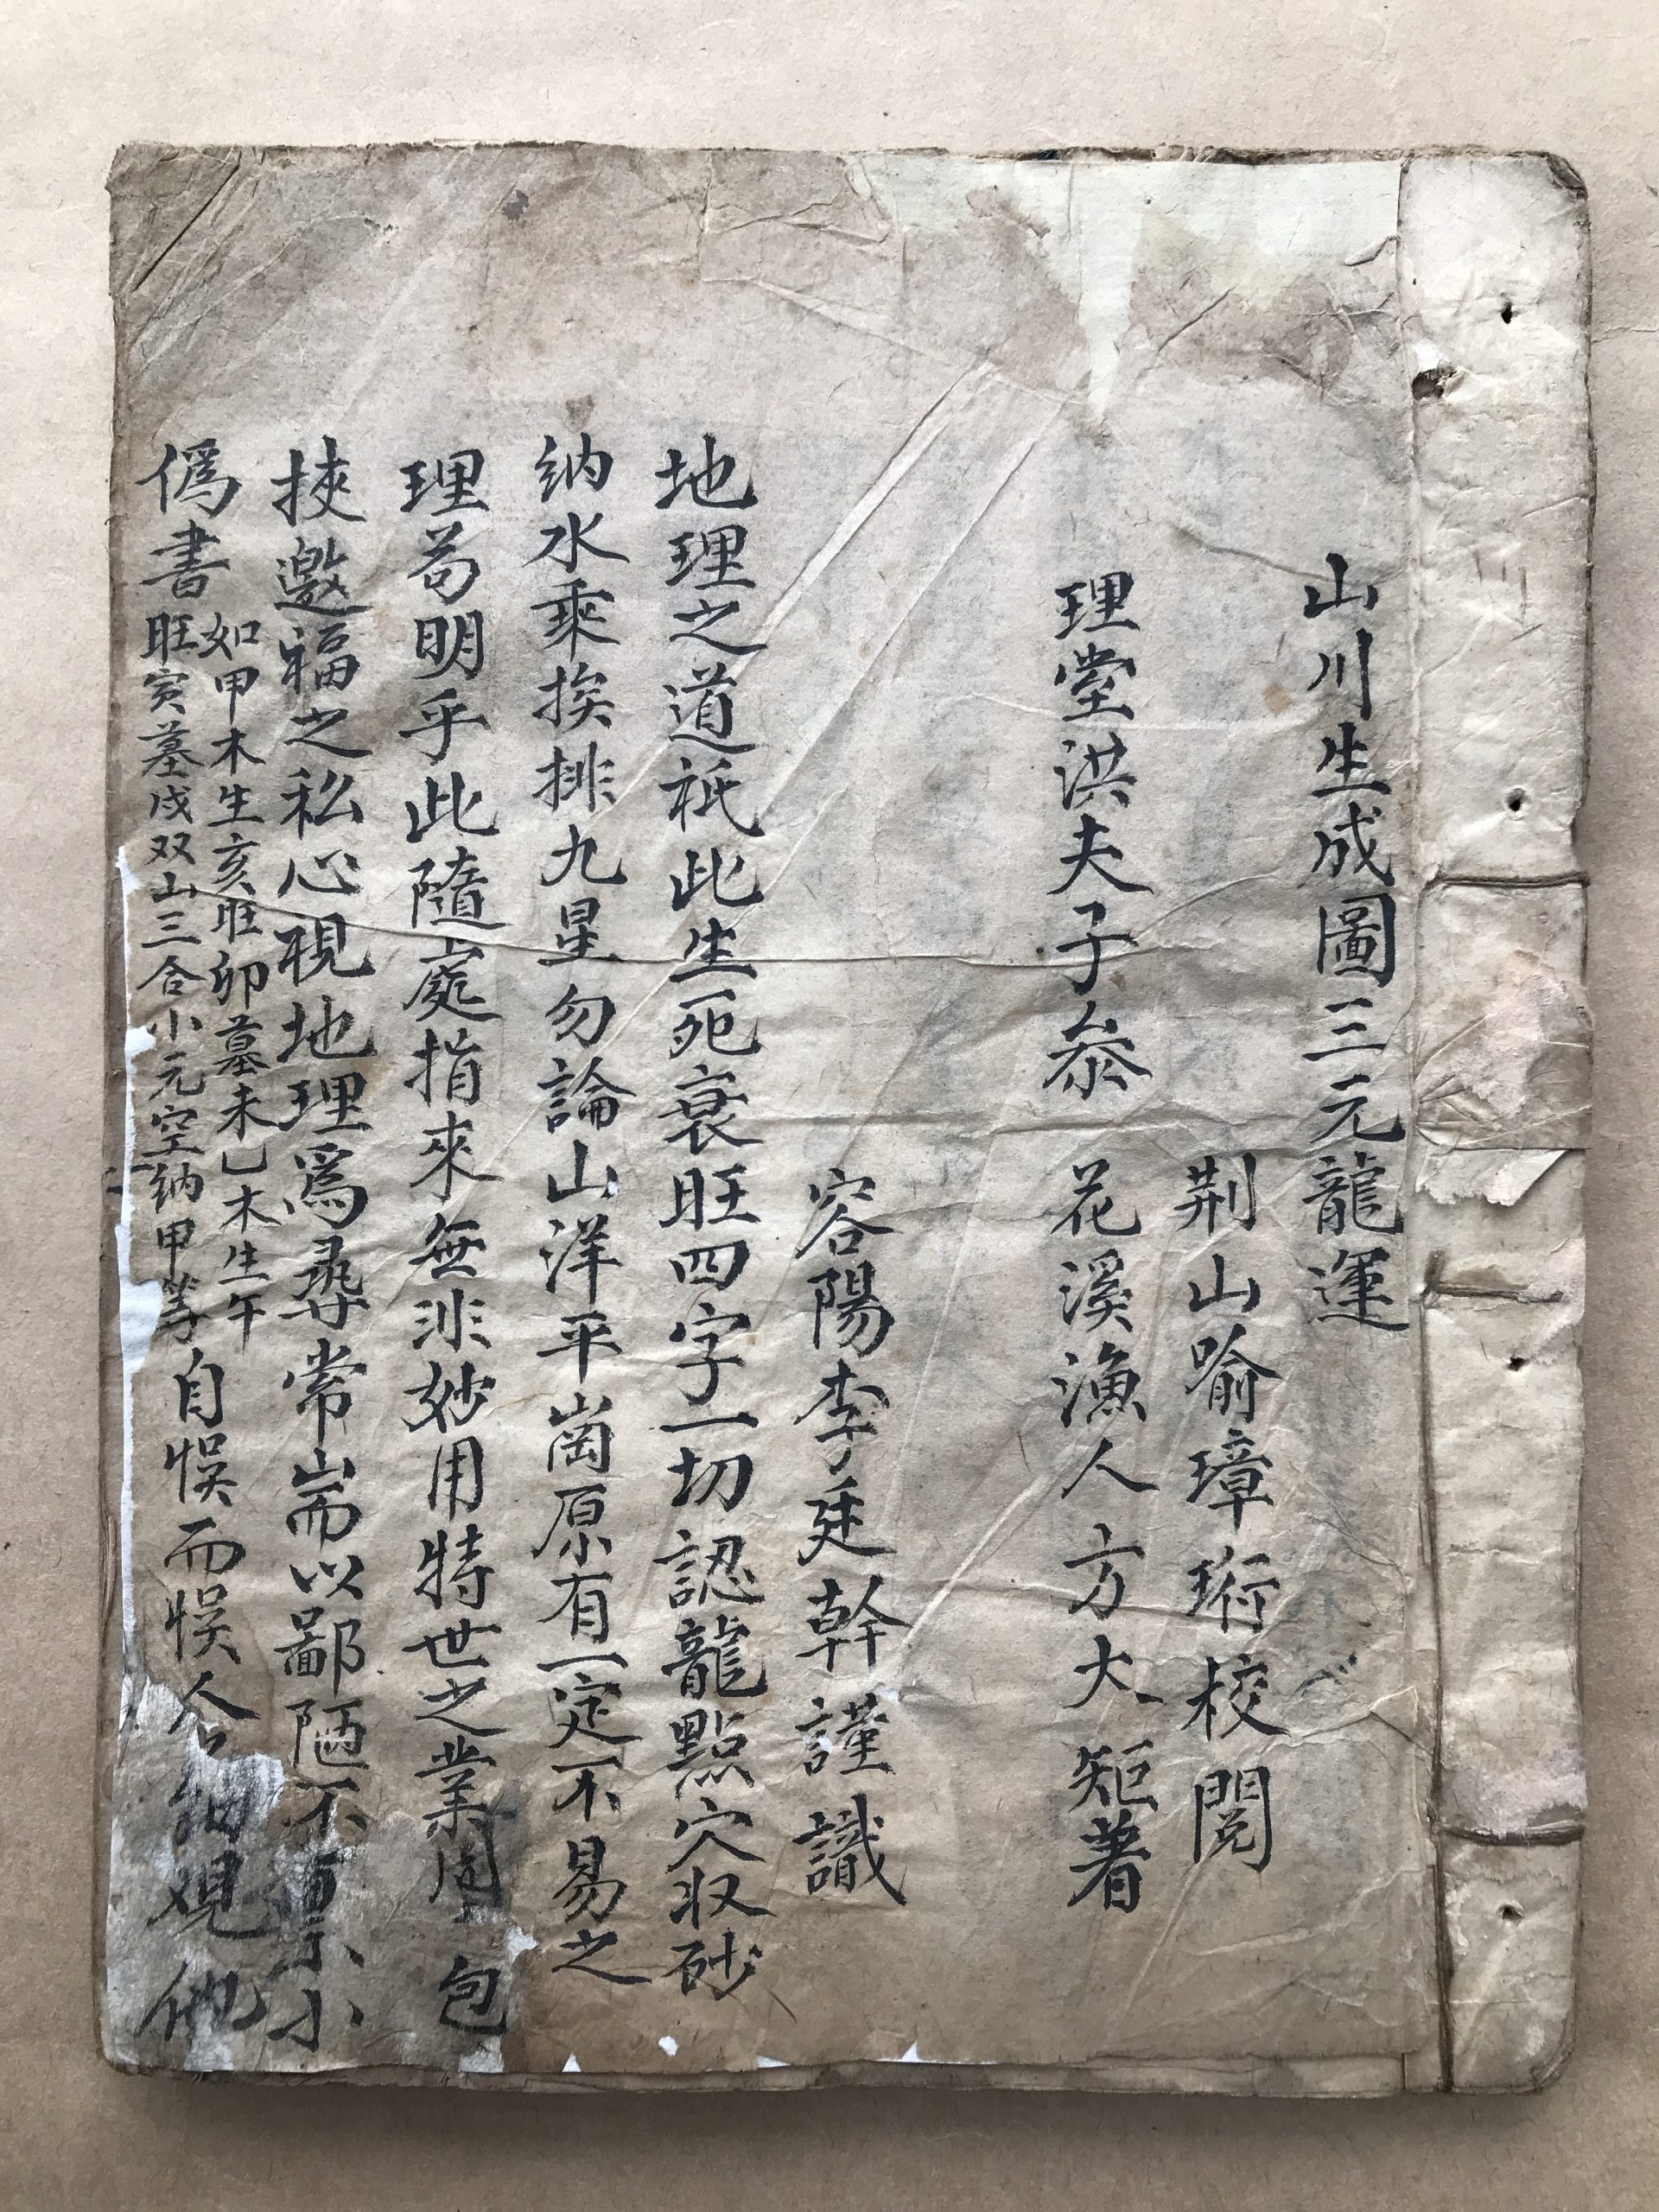 山川生成圖三元龍運
荆山喻璋珩校閱
理堂洪夫子叅 花溪漁人方大矩著
容陽李廷幹謹識
地理之道祇此生死衰旺四字一切認龍點穴収砂
纳水乘挨排九星勿論山洋平崗原有一定不易之
理苟明乎此隨處指来無非妙用特世之業 包
挾邀福之私心視地理爲尋常耑以鄙陋不 小
僞書
如甲木生亥旺卯墓未乚木生午
旺寅墓戌双山三合小元空纳甲等
自悮而悮人 細观他